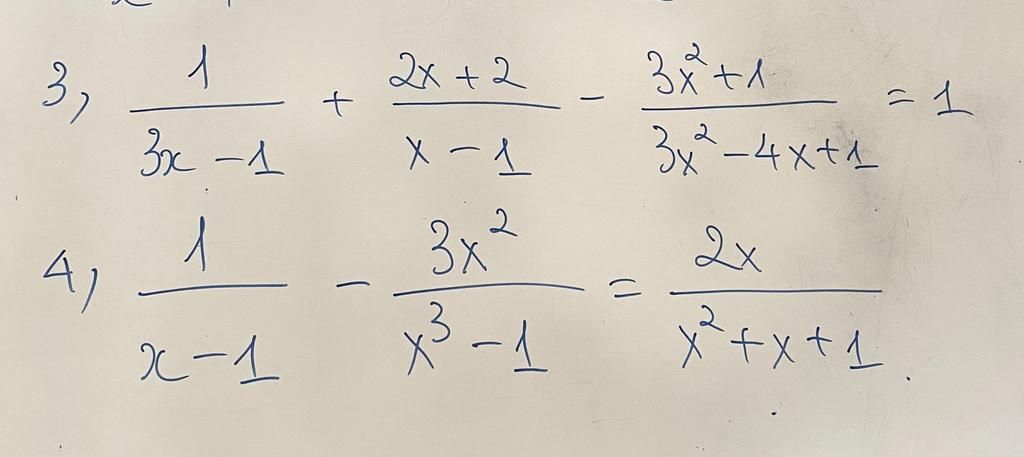 3, 1/(3x - 1) + (2x + 2)/(x - 1) - (3x² + 1)/(3x² - 4x + 1) = 1
4, 1/(x - 1) - 3x²/(x³ - 1) = 2x/(x² + x + 1).